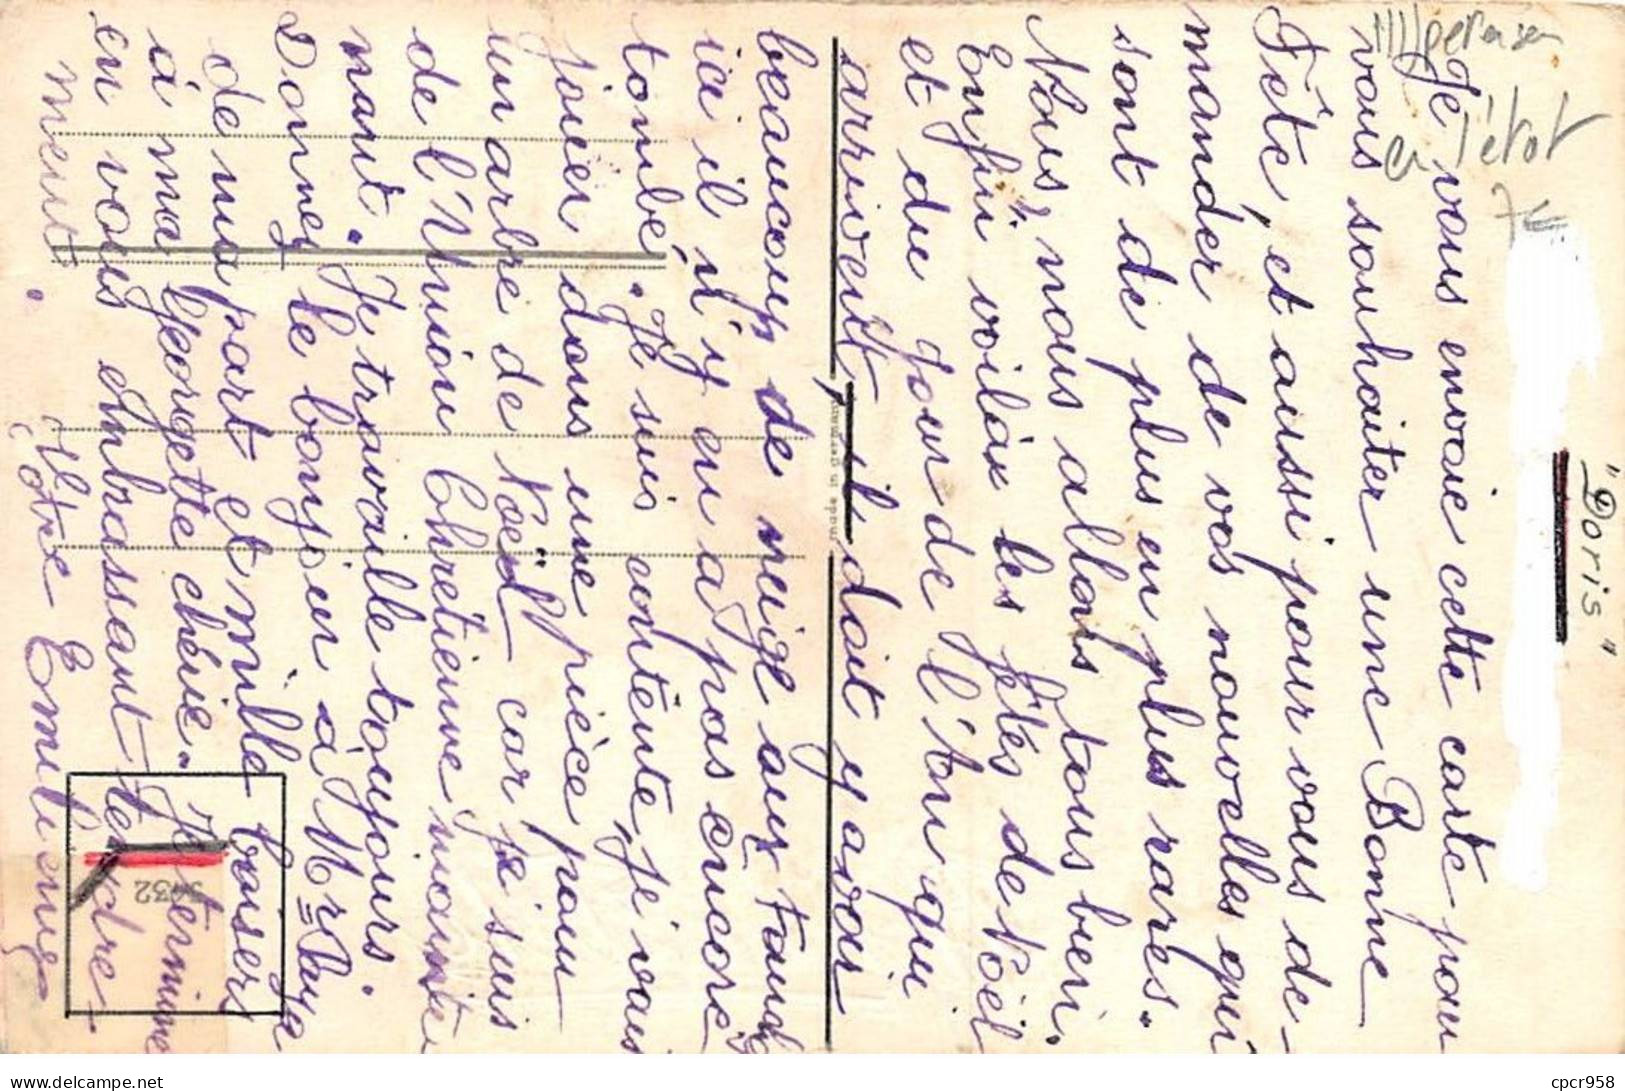 "Doris"
Je vous envoie cette carte pour
vous souhaiter une Bonne
Fête, et aussi pour vous de-
mander de vos nouvelles qui
sont de plus en plus rares.
Nous, nous allons tous bien.
Enfin voilà les fêtes de Noël
et du jour de l'an qui
arrivent, il doit y avoir
beaucoup de neige aux
ici il n'y en a pas encore
tombé. Je suis contente, je vais
jouer dans une pièce pour
un arbre de Noël car je suis
de l'Union Chrétienne
nant. Je travaille toujours.
Donnez le bonjour à Mr
de ma part et mille baisers
à ma Georgette chérie. Je termine
en vous embrassant tendre-
ment.
Votre Emilienne
made in germany
5732
cpcr958